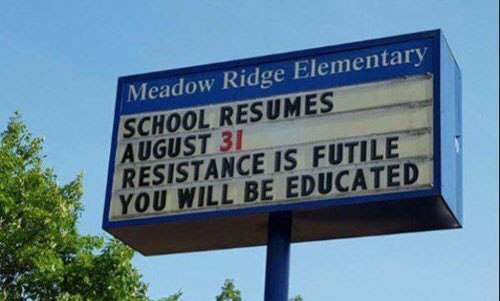 Meadow Ridge Elementary
SCHOOL RESUMES
AUGUST 31
RESISTANCE IS FUTILE
YOU WILL BE EDUCATED